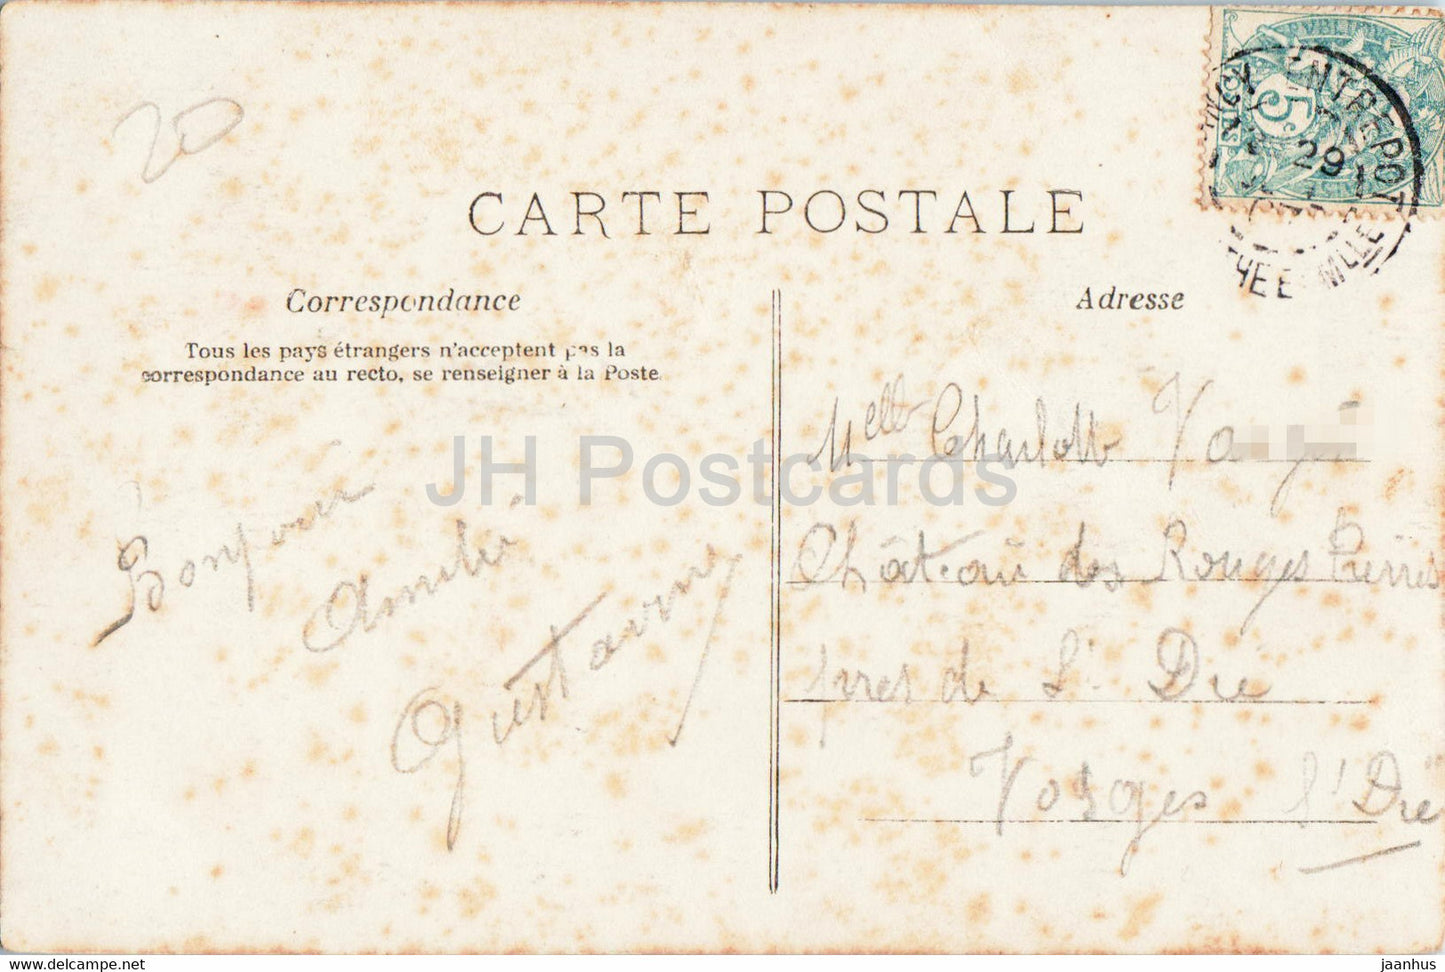 20
CARTE POSTALE
5c
ENTREPOT
29
Correspondance
Adresse
Tous les pays étrangers n'acceptent pas la
correspondance au recto, se renseigner à la Poste.
Melle Charlott
Château des Rouges Pierres
pres de St Dié
Vosges St Dié
Bonjour
Amitié
Gustave
JH Postcards
www.delcampe.net
jaanhus